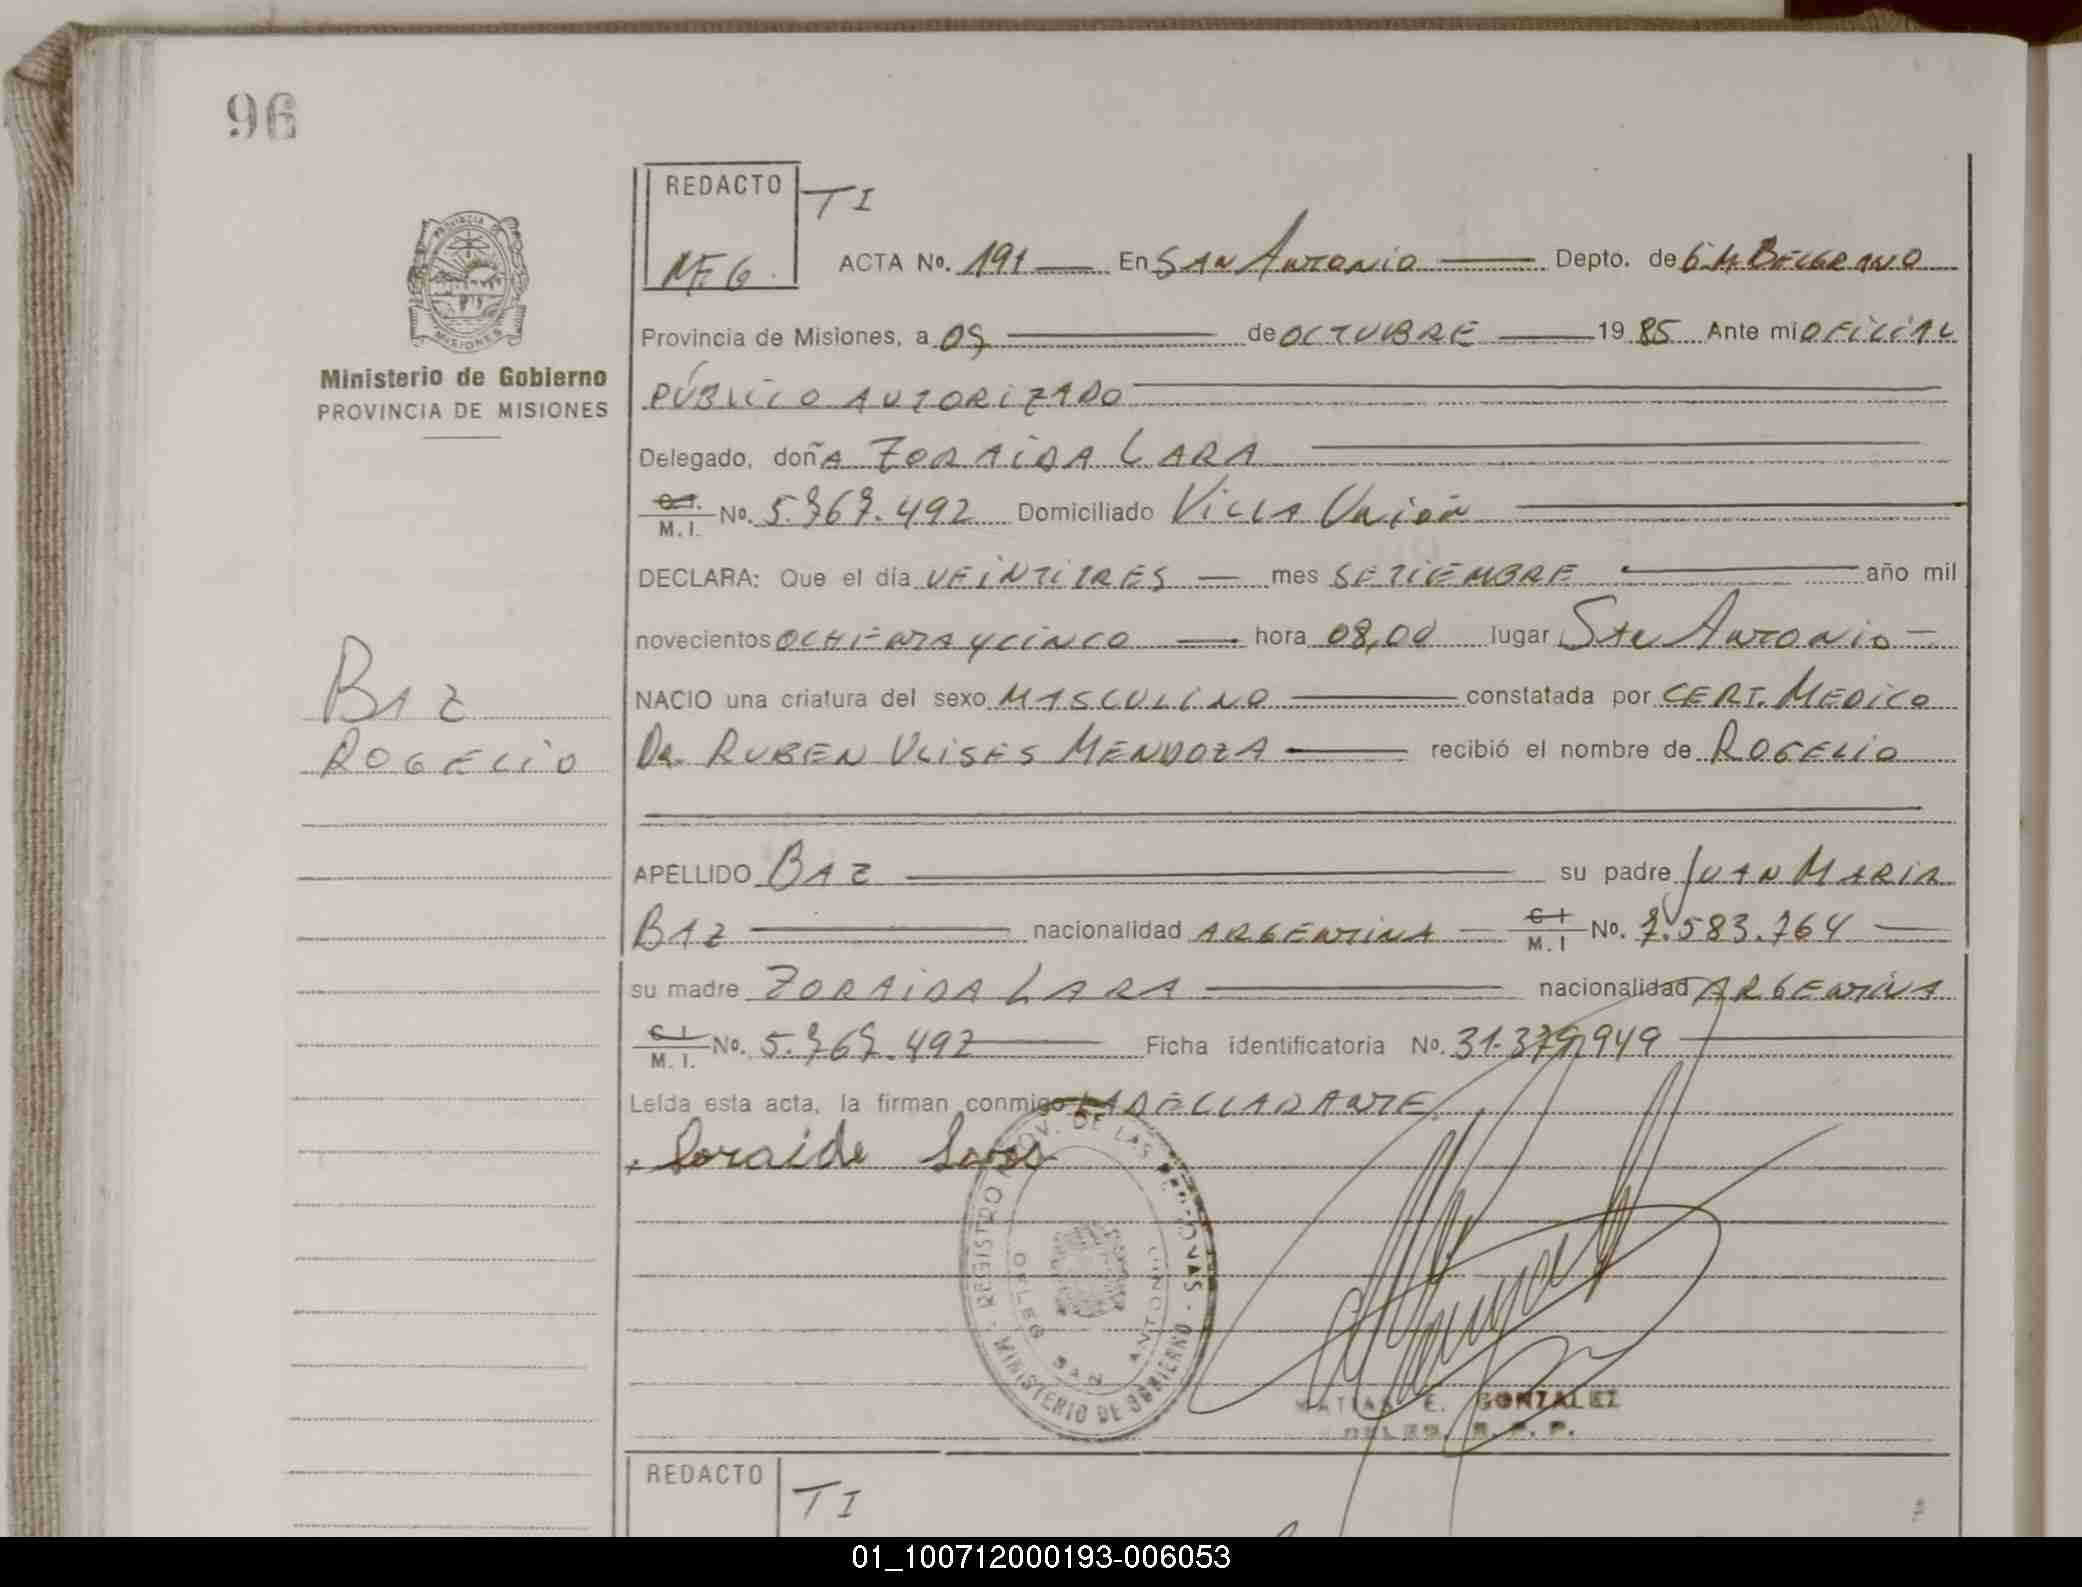 96
REDACTO
TI
M.E.G.
ACTA No. 191 En SAN ANTONIO Depto. de G.M. BELGRANO
PROVINCIA DE
MISIONES
Ministerio de Gobierno
PROVINCIA DE MISIONES
Provincia de Misiones, a 09 de OCTUBRE 19 85 Ante mi OFICIAL
PÚBLICO AUTORIZADO
Delegado, doñA ZORAIDA LARA
C.I.
M.I. No. 5.967.492 Domiciliado VILLA UNIÓN
DECLARA: Que el día VEINTITRES mes SETIEMBRE año mil
novecientos OCHENTA Y CINCO hora 08,00 lugar SAN ANTONIO
NACIO una criatura del sexo MASCULINO constatada por CERT. MEDICO
DR. RUBEN ULISES MENDOZA recibió el nombre de ROGELIO
BAZ
ROGELIO
APELLIDO BAZ su padre JUAN MARIA
BAZ nacionalidad ARGENTINA C I
M.I No. 7.583.764
su madre ZORAIDA LARA nacionalidad ARGENTINA
C I
M.I. No. 5.967.492 Ficha identificatoria No. 31.379.949
Leída esta acta, la firman conmigo LA DECLARANTE.
Soraide Lara
REGISTRO PROV. DE LAS PERSONAS
MINISTERIO DE GOBIERNO
DELEG. SAN ANTONIO
MATIAS E. GONZALEZ
DELEG. R. P. P.
REDACTO
TI
01_100712000193-006053